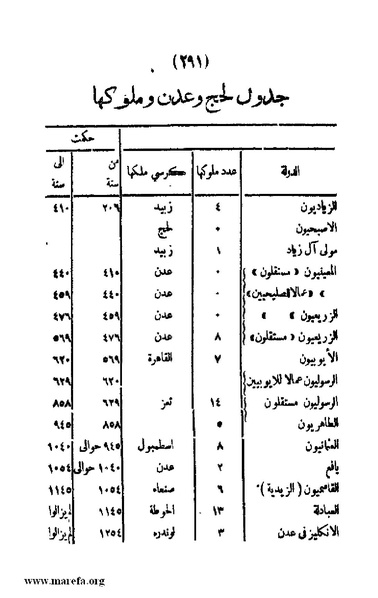 (٢٩١)
جدول لحج وعدن وملوكها
حكمت
الدولة عدد ملوكها كرسي ملكها من سنة الى سنة
الزياديون ٤ زبيد ٢٠٦ ٤١٠
الاصبحيون ٠ لحج
مولى آل زياد ١ زبيد
المعينيون « مستقلون » ٠ عدن ٤١٠ ٤٤٠
» «عمالا للصليحيين» ٠ عدن ٤٤٠ ٤٥٩
الزريعيون » » ٠ عدن ٤٥٩ ٤٧٦
الزريعيون « مستقلون» ٨ عدن ٤٧٦ ٥٦٩
الأيوبيون ٧ القاهرة ٥٦٩ ٦٢٠
الرسوليون عمالا للايوبيين ٦٢٠ ٦٢٩
الرسوليون مستقلون ١٤ تعز ٦٢٩ ٨٥٨
الطاهريون ٥ ٨٥٨ ٩٤٥
العثمانيون ٨ اسطمبول ٩٤٥ حوالى ١٠٤٠
يافع ٢ عدن ١٠٤٠ حوالى ١٠٥٤
القاسميون ( الزيدية ) ٦ صنعاء ١٠٥٤ ١١٤٥
العبادلة ١٣ الحوطة ١١٤٥ لم يزالوا
الانكليز فى عدن ٣ لوندره ١٢٥٤ لم يزالوا
www.marefa.org